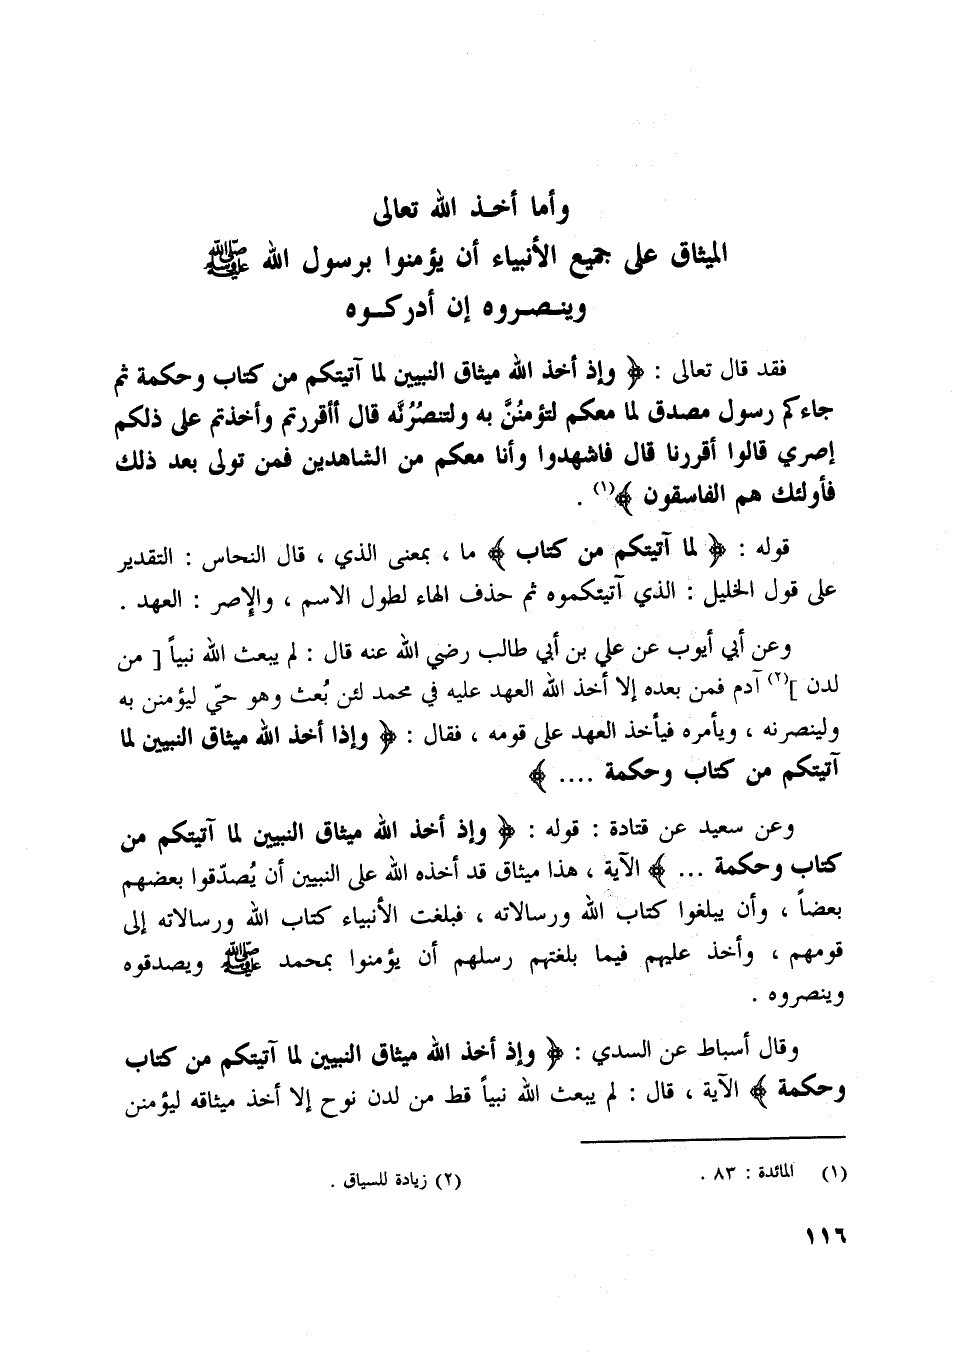 وأما أخـذ الله تعالى
الميثاق على جميع الأنبياء أن يؤمنوا برسول الله ﷺ
وينـصـروه إن أدركـوه
فقد قال تعالى : ﴿ وإذ أخذ الله ميثاق النبيين لما آتيتكم من كتاب وحكمة ثم
جاءكم رسول مصدق لما معكم لتؤمنُنَّ به ولتنصُرُنَّه قال أأقررتم وأخذتم على ذلكم
إصري قالوا أقررنا قال فاشهدوا وأنا معكم من الشاهدين فمن تولى بعد ذلك
فأولئك هم الفاسقون ﴾(١) .
قوله : ﴿ لما آتيتكم من كتاب ﴾ ما ، بمعنى الذي ، قال النحاس : التقدير
على قول الخليل : الذي آتيتكموه ثم حذف الهاء لطول الاسم ، والإصر : العهد .
وعن أبي أيوب عن علي بن أبي طالب رضي الله عنه قال : لم يبعث الله نبياً [ من
لدن ](٢) آدم فمن بعده إلا أخذ الله العهد عليه في محمد لئن بُعث وهو حيّ ليؤمنن به
ولينصرنه ، ويأمره فيأخذ العهد على قومه ، فقال : ﴿ وإذا أخذ الله ميثاق النبيين لما
آتيتكم من كتاب وحكمة .... ﴾
وعن سعيد عن قتادة : قوله : ﴿ وإذ أخذ الله ميثاق النبيين لما آتيتكم من
كتاب وحكمة ... ﴾ الآية ، هذا ميثاق قد أخذه الله على النبيين أن يُصدّقوا بعضهم
بعضاً ، وأن يبلغوا كتاب الله ورسالاته ، فبلغت الأنبياء كتاب الله ورسالاته إلى
قومهم ، وأخذ عليهم فيما بلغتهم رسلهم أن يؤمنوا بمحمد ﷺ ويصدقوه
وينصروه .
وقال أسباط عن السدي : ﴿ وإذ أخذ الله ميثاق النبيين لما آتيتكم من كتاب
وحكمة ﴾ الآية ، قال : لم يبعث الله نبياً قط من لدن نوح إلا أخذ ميثاقه ليؤمنن
(١) المائدة : ٨٣ . (٢) زيادة للسياق .
١١٦